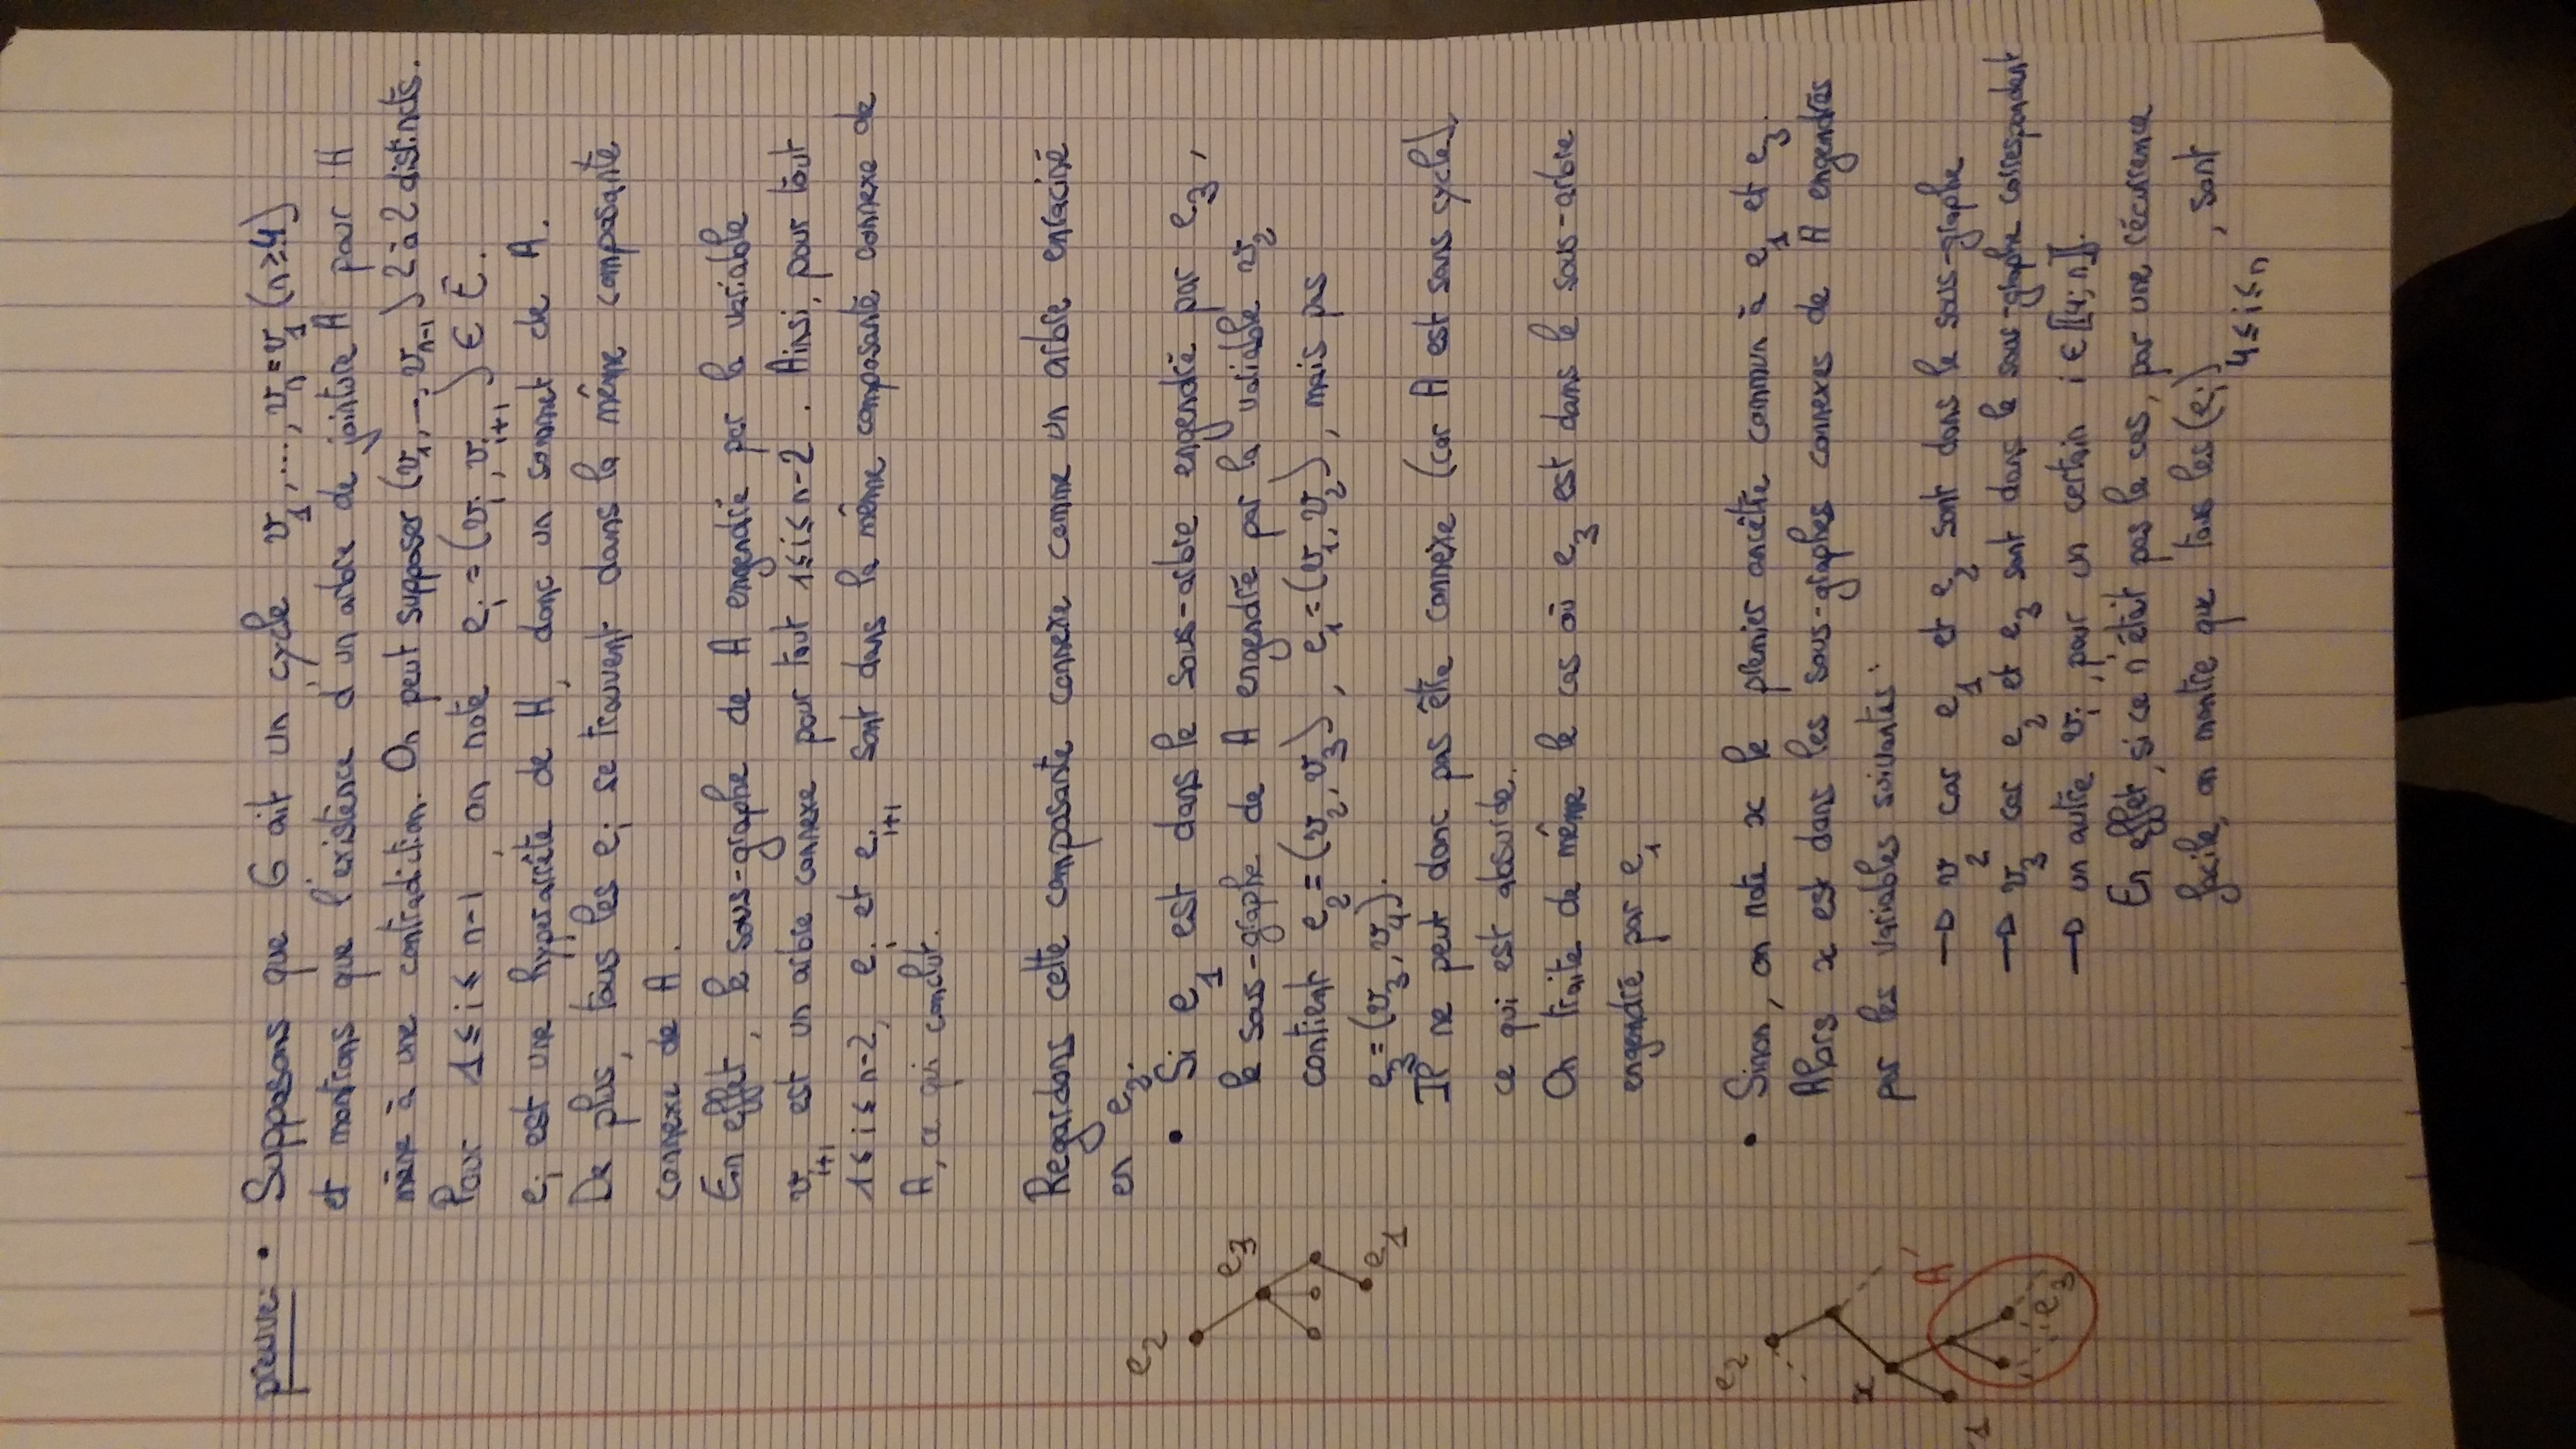 preuve: • Supposons que G ait un cycle v₁,..., vₙ=v₁ (n≥4)
et montrons que l'existence d'un arbre de jointure A pour H
mène à une contradiction. On peut supposer (v₁,..., vₙ₋₁) 2 à 2 distincts.
Pour 1≤i≤n-1, on note eᵢ = (vᵢ, vᵢ₊₁) ∈ E.
eᵢ est une hyperarrête de H, donc un sommet de A.
De plus, tous les eᵢ se trouvent dans la même composante
connexe de A.
En effet, le sous-graphe de A engendré par la variable
vᵢ₊₁ est un arbre connexe pour tout 1≤i≤n-2. Ainsi, pour tout
1≤i≤n-2, eᵢ et eᵢ₊₁ sont dans la même composante connexe de
A, ce qui conclut.
Regardons cette composante connexe comme un arbre enraciné
en e₂.
e₂
e₃
e₁
• Si e₁ est dans le sous-arbre engendré par e₃,
le sous-graphe de A engendré par la variable v₂
contient e₂=(v₂,v₃), e₁=(v₁,v₂), mais pas
e₃=(v₃,v₄).
Il ne peut donc pas être connexe (car A est sans cycle),
ce qui est absurde.
On traite de même le cas où e₃ est dans le sous-arbre
engendré par e₁
e₂
x
A'
1
e₃
• Sinon, on note x le premier ancêtre commun à e₁ et e₃.
Alors x est dans les sous-graphes connexes de A engendrés
par les variables suivantes :
→ v₂ car e₁ et e₂ sont dans le sous-graphe
→ v₃ car e₂ et e₃ sont dans le sous-graphe correspondant
→ un autre vᵢ, pour un certain i ∈ ⟦4; n⟧.
En effet, si ce n'était pas le cas, par une récurrence
facile, on montre que tous les (eᵢ)₄≤ᵢ≤ₙ, sont